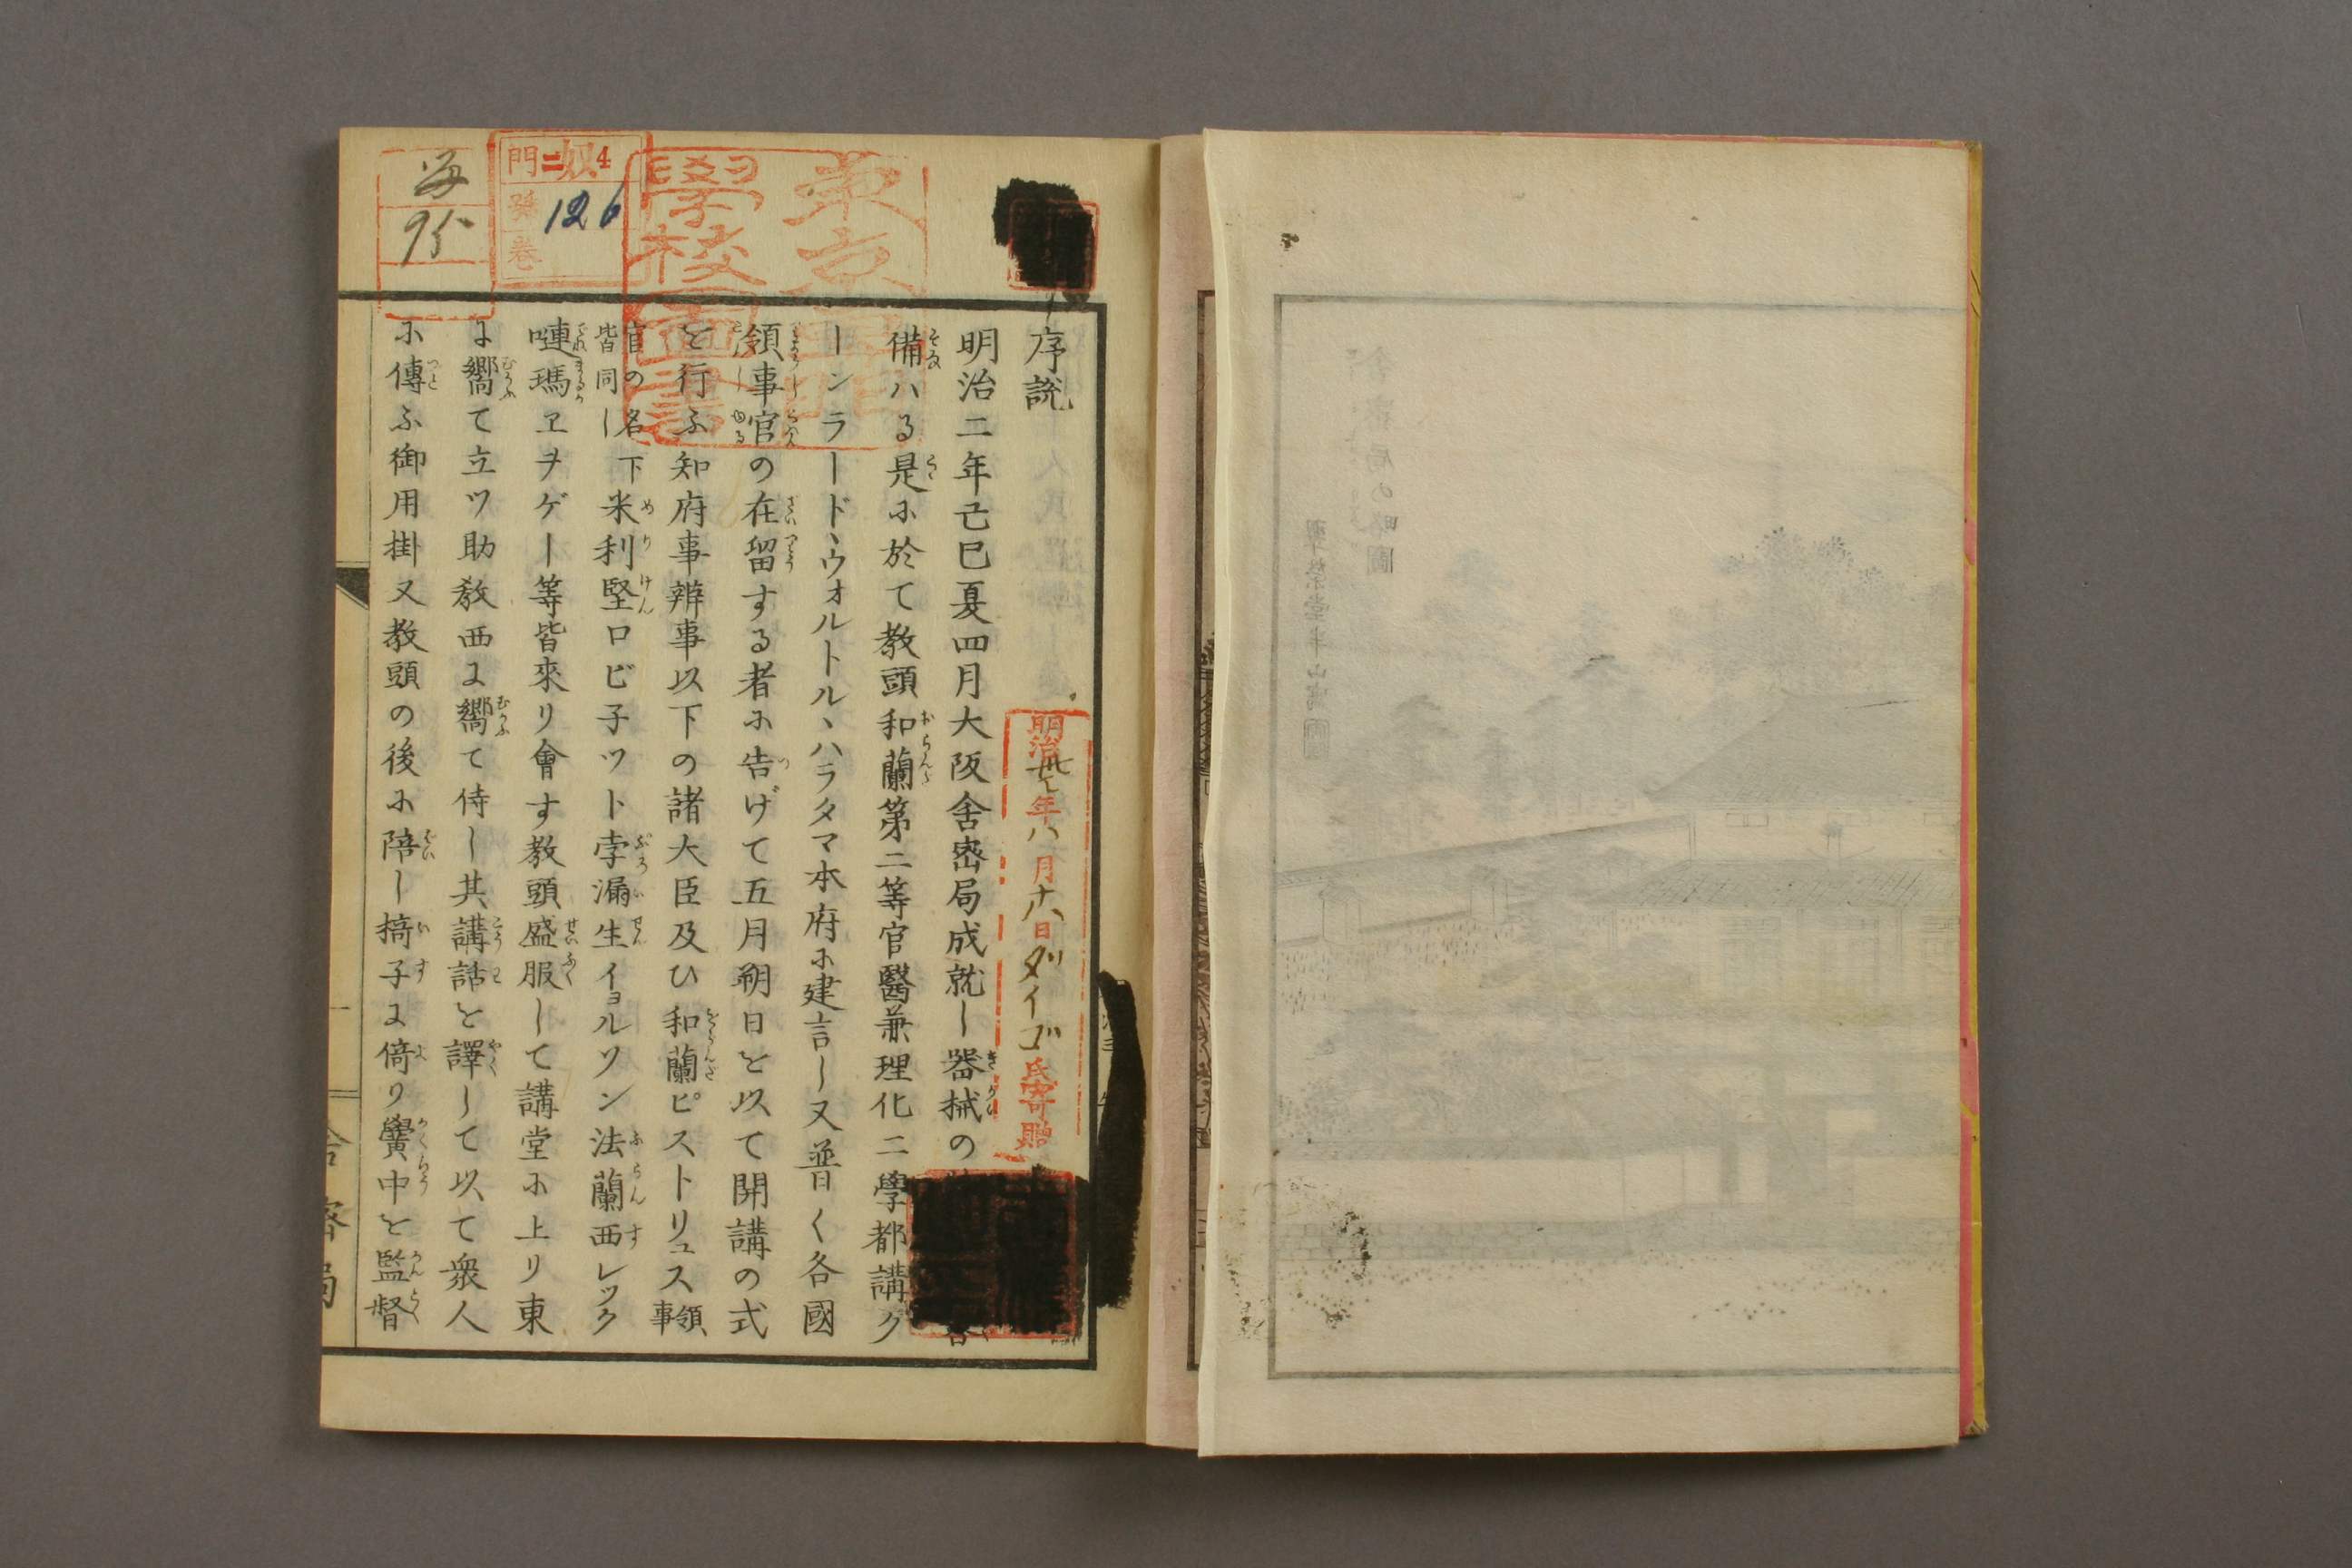 序説
明治二年己巳夏四月大阪舎密局成就し器械の
備ハる是に於て教頭和蘭第二等官醫兼理化二學都講ク
ーンラード、ウォルトル、ハラタマ本府に建言し又普く各國
領事官の在留する者に告げて五月朔日を以て開講の式
を行ふ知府事辨事以下の諸大臣及ひ和蘭ピストリュス領事
官の名下皆同し米利堅ロビ子ツト孛漏生イョルソン法蘭西レック
嗹瑪ヱヲゲー等皆來り會す教頭盛服して講堂に上り東
に嚮て立ツ助教西に嚮て侍し其講話を譯して以て衆人
に傳ふ御用掛又教頭の後に陪し椅子に倚り黌中を監督
舎密局
明治廿七年八月十八日ダイゴ氏寄贈
東京
學校
圖書
門ニ奴4
號126
巻